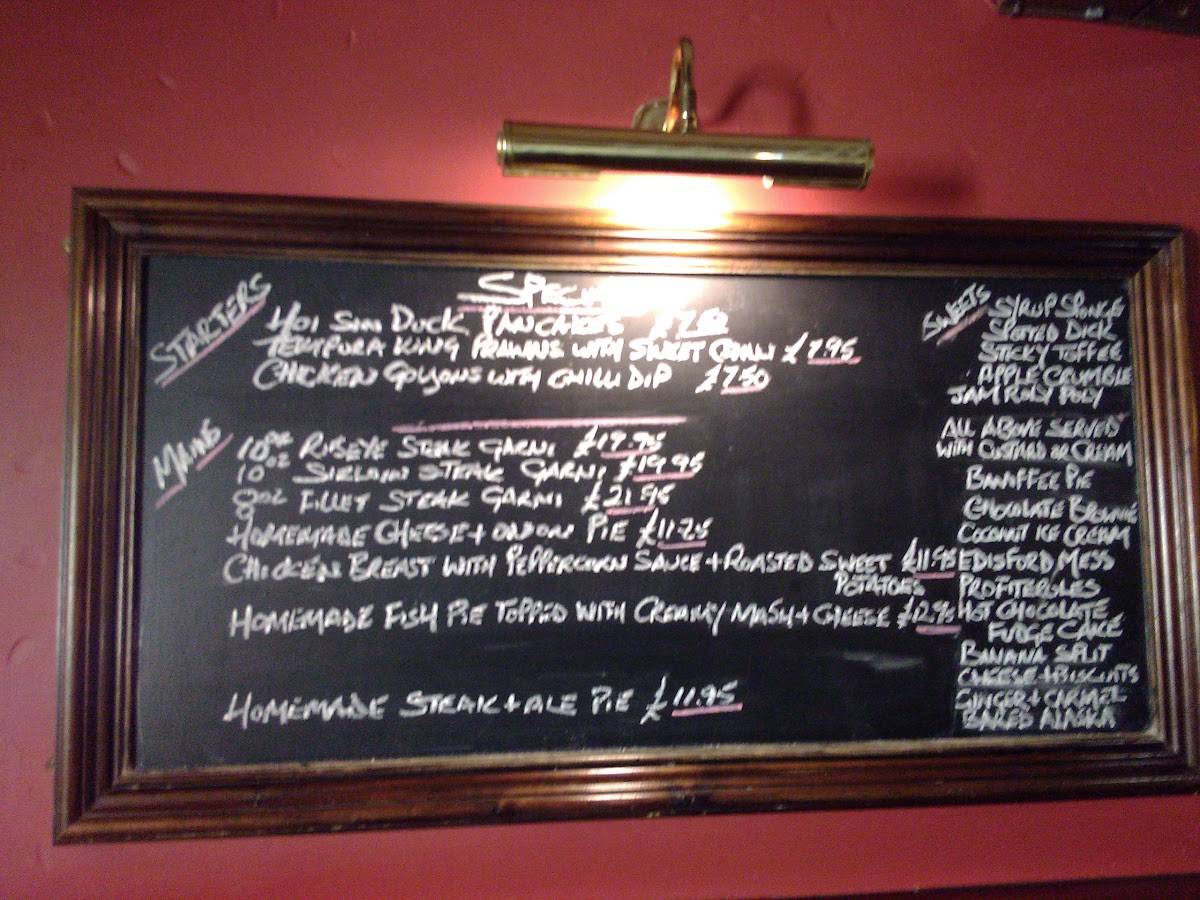 SPECI
STARTERS
HOI SIN DUCK PANCAKES £7.50
TEMPURA KING PRAWNS WITH SWEET CHILLI £7.95
CHICKEN GOUJONS WITH CHILLI DIP £7.50
MAINS
10oz RIBEYE STEAK GARNI £19.95
10oz SIRLOIN STEAK GARNI £19.95
8oz FILLET STEAK GARNI £21.95
HOMEMADE CHEESE + ONION PIE £11.25
CHICKEN BREAST WITH PEPPERCORN SAUCE + ROASTED SWEET £11.95
POTATOES
HOMEMADE FISH PIE TOPPED WITH CREAMY MASH + CHEESE £12.95
HOMEMADE STEAK + ALE PIE £11.95
SWEETS
SYRUP SPONGE
SPOTTED DICK
STICKY TOFFEE
APPLE CRUMBLE
JAM ROLY POLY
ALL ABOVE SERVED
WITH CUSTARD OR CREAM
BANOFFEE PIE
CHOCOLATE BROWNIE
COCONUT ICE CREAM
EDISFORD MESS
PROFITEROLES
HOT CHOCOLATE
FUDGE CAKE
BANANA SPLIT
CHEESE + BISCUITS
GINGER + CARAMEL
BAKED ALASKA